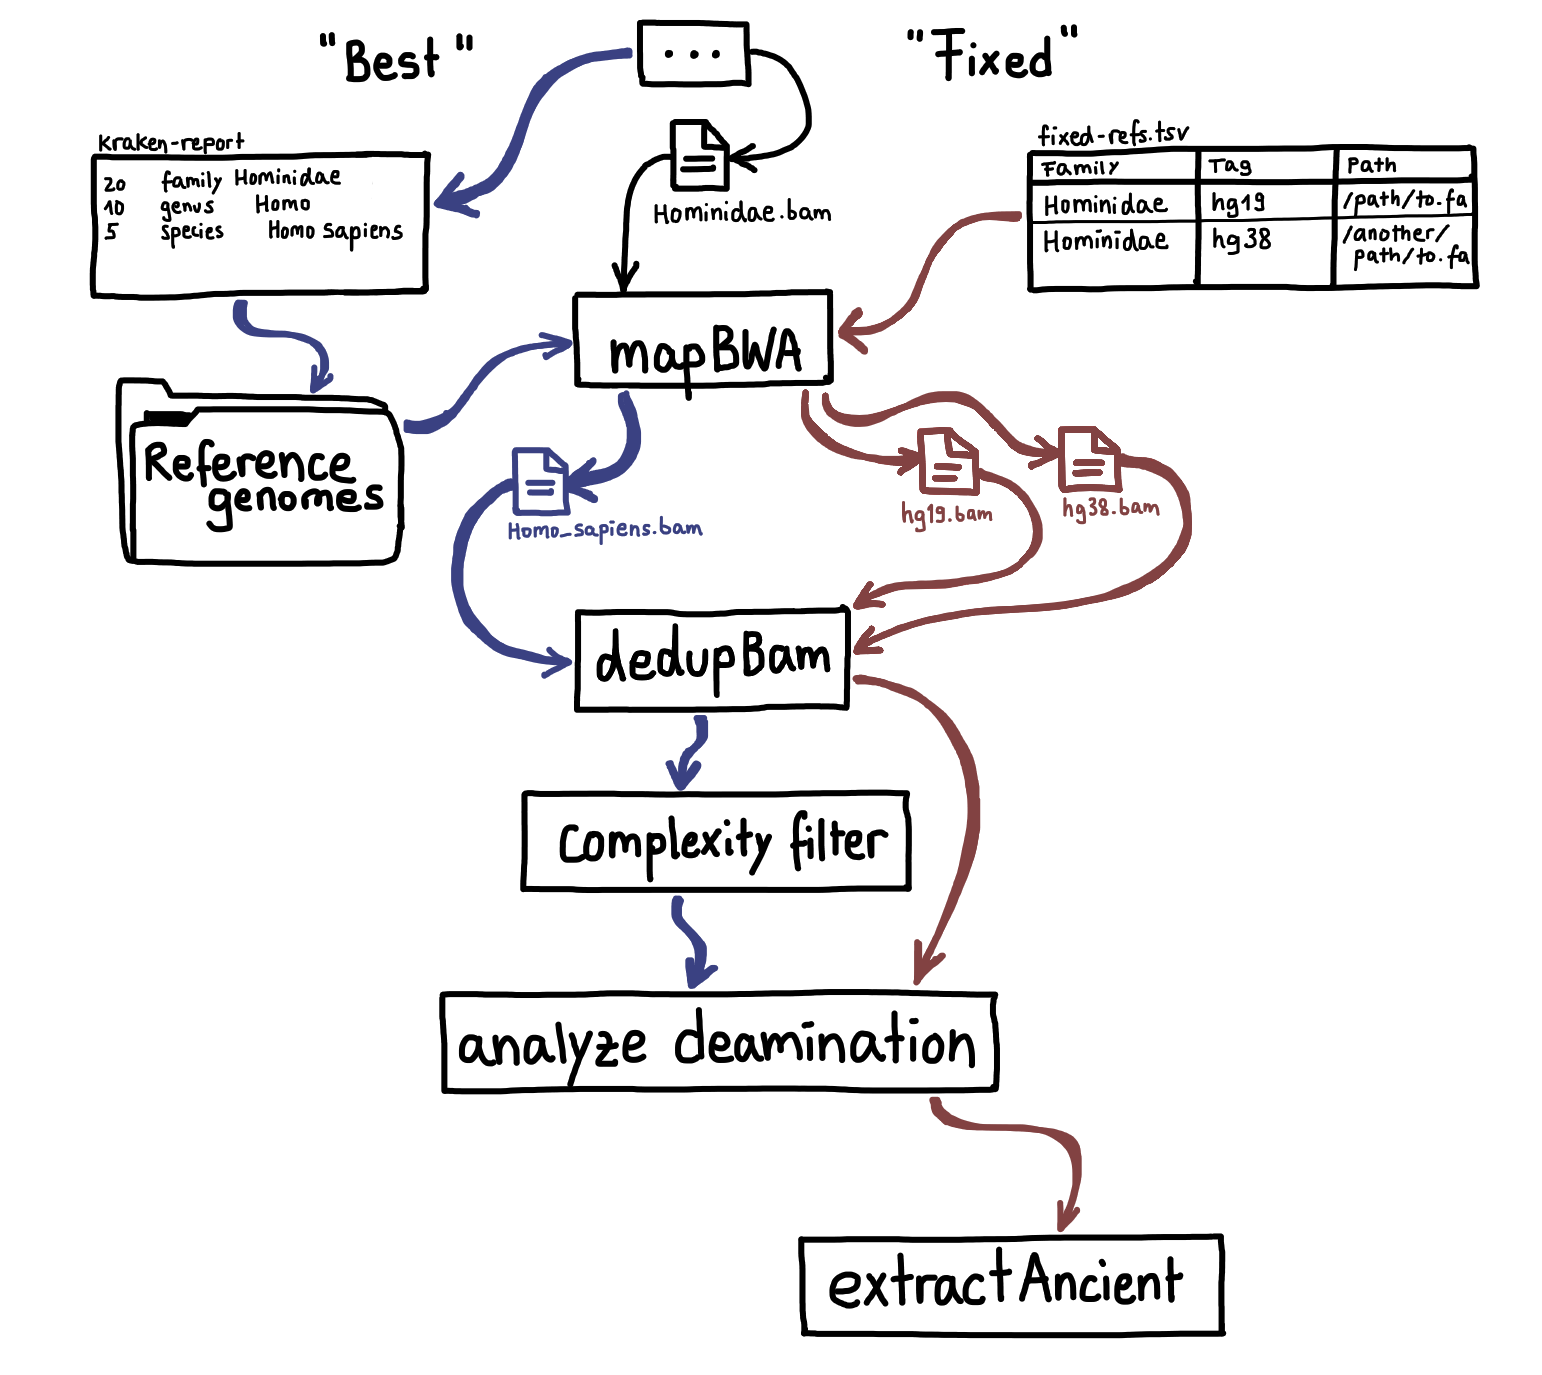 "Best"
...
"Fixed"
kraken-report
20 family Hominidae
10 genus Homo
5 species Homo sapiens
Hominidae.bam
fixed-refs.tsv
Family Tag Path
Hominidae hg19 /path/to.fa
Hominidae hg38 /another/
path/to.fa
mapBWA
Reference
genomes
Homo_sapiens.bam
hg19.bam
hg38.bam
dedupBam
complexity filter
analyze deamination
extractAncient